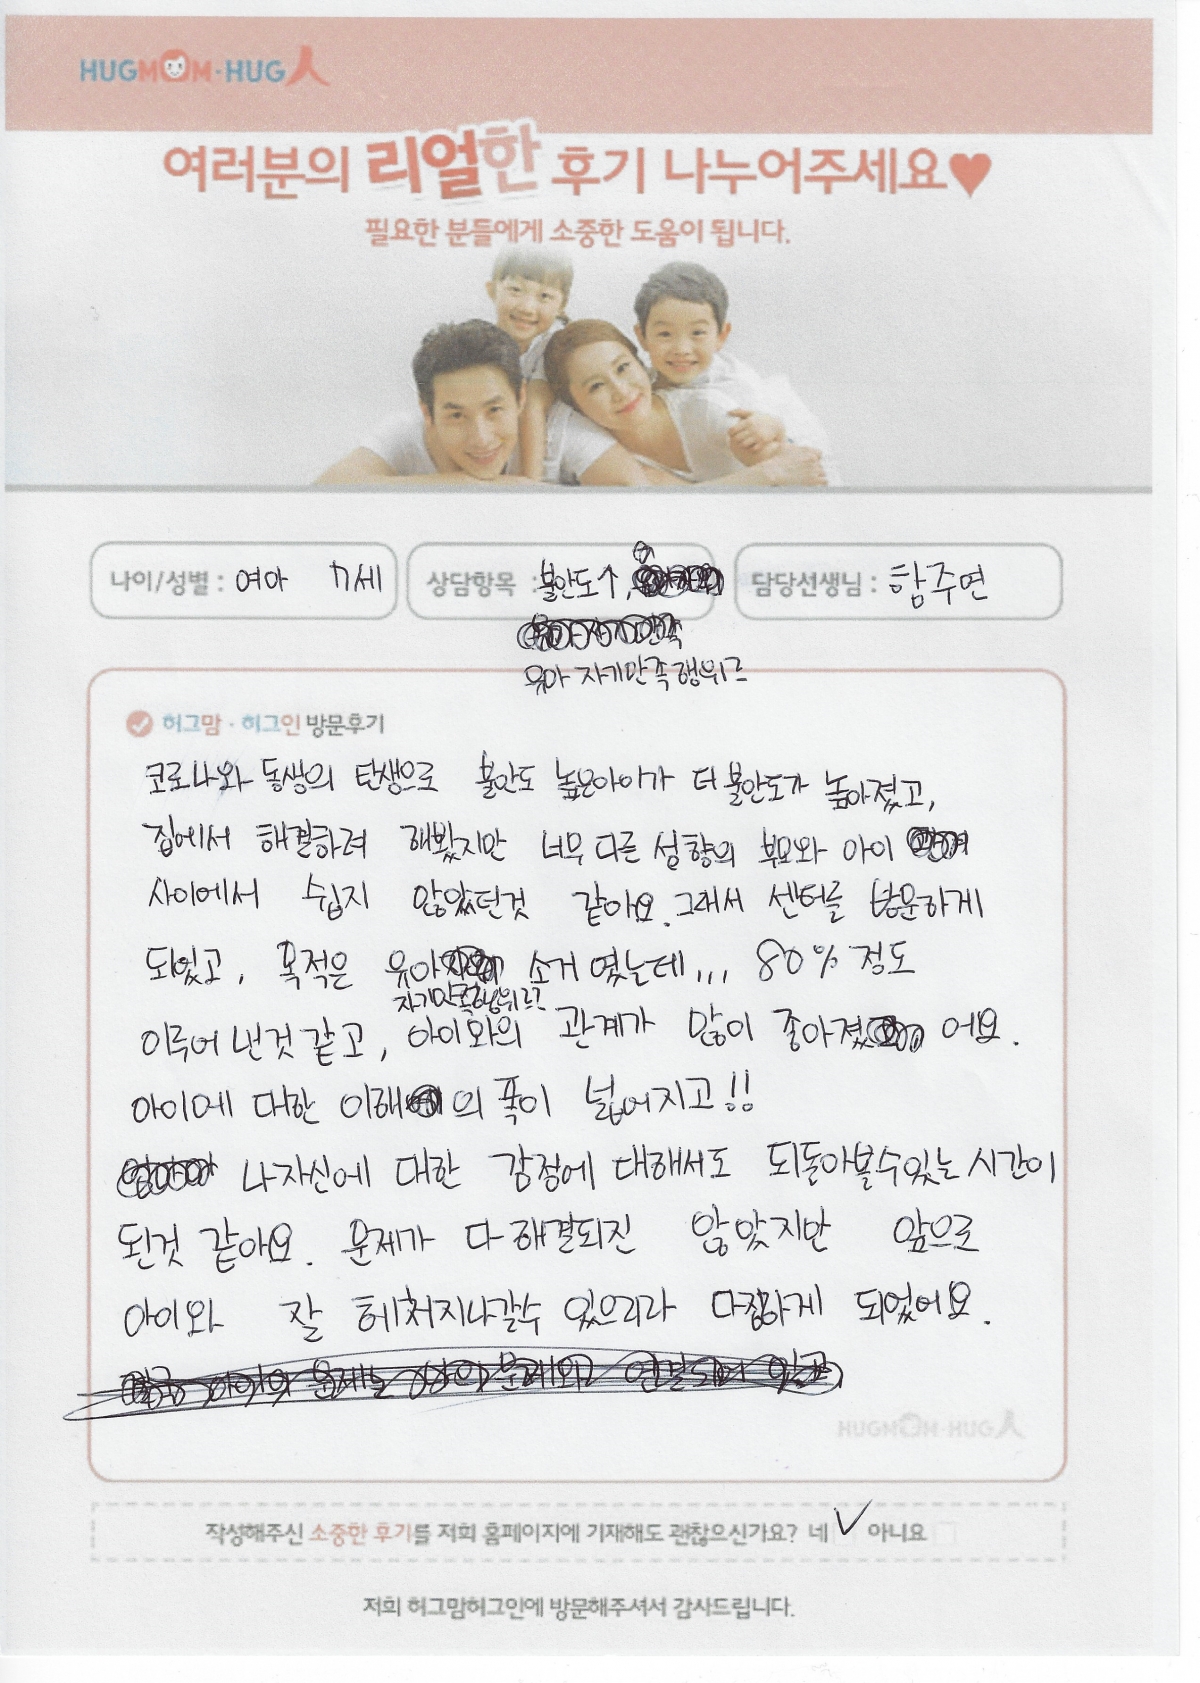 HUGMOM·HUG人
여러분의 리얼한 후기 나누어주세요♥
필요한 분들에게 소중한 도움이 됩니다.
나이/성별 : 여아 7세
상담항목 : 불안도↑,
유아 자기만족행위로
담당선생님 : 함주연
허그맘·허그인 방문후기
코로나와 동생의 탄생으로 불안도 높은아이가 더 불안도가 높아졌고,
집에서 해결하려 해봤지만 너무 다른 성향의 부모와 아이
사이에서 쉽지 않았던것 같아요. 그래서 센터를 방문하게
되었고, 목적은 유아 소거 였는데... 80% 정도
자기만족행위르?
이루어 낸것 같고, 아이와의 관계가 많이 좋아졌어요.
아이에 대한 이해의 폭이 넓어지고!!
나자신에 대한 감정에 대해서도 되돌아볼수있는 시간이
된것 같아요. 문제가 다 해결되진 않았지만 앞으로
아이와 잘 헤쳐지나갈수 있으리라 다짐하게 되었어요.
HUGMOM·HUG人
작성해주신 소중한 후기를 저희 홈페이지에 기재해도 괜찮으신가요? 네 ✓ 아니요 □
저희 허그맘허그인에 방문해주셔서 감사드립니다.